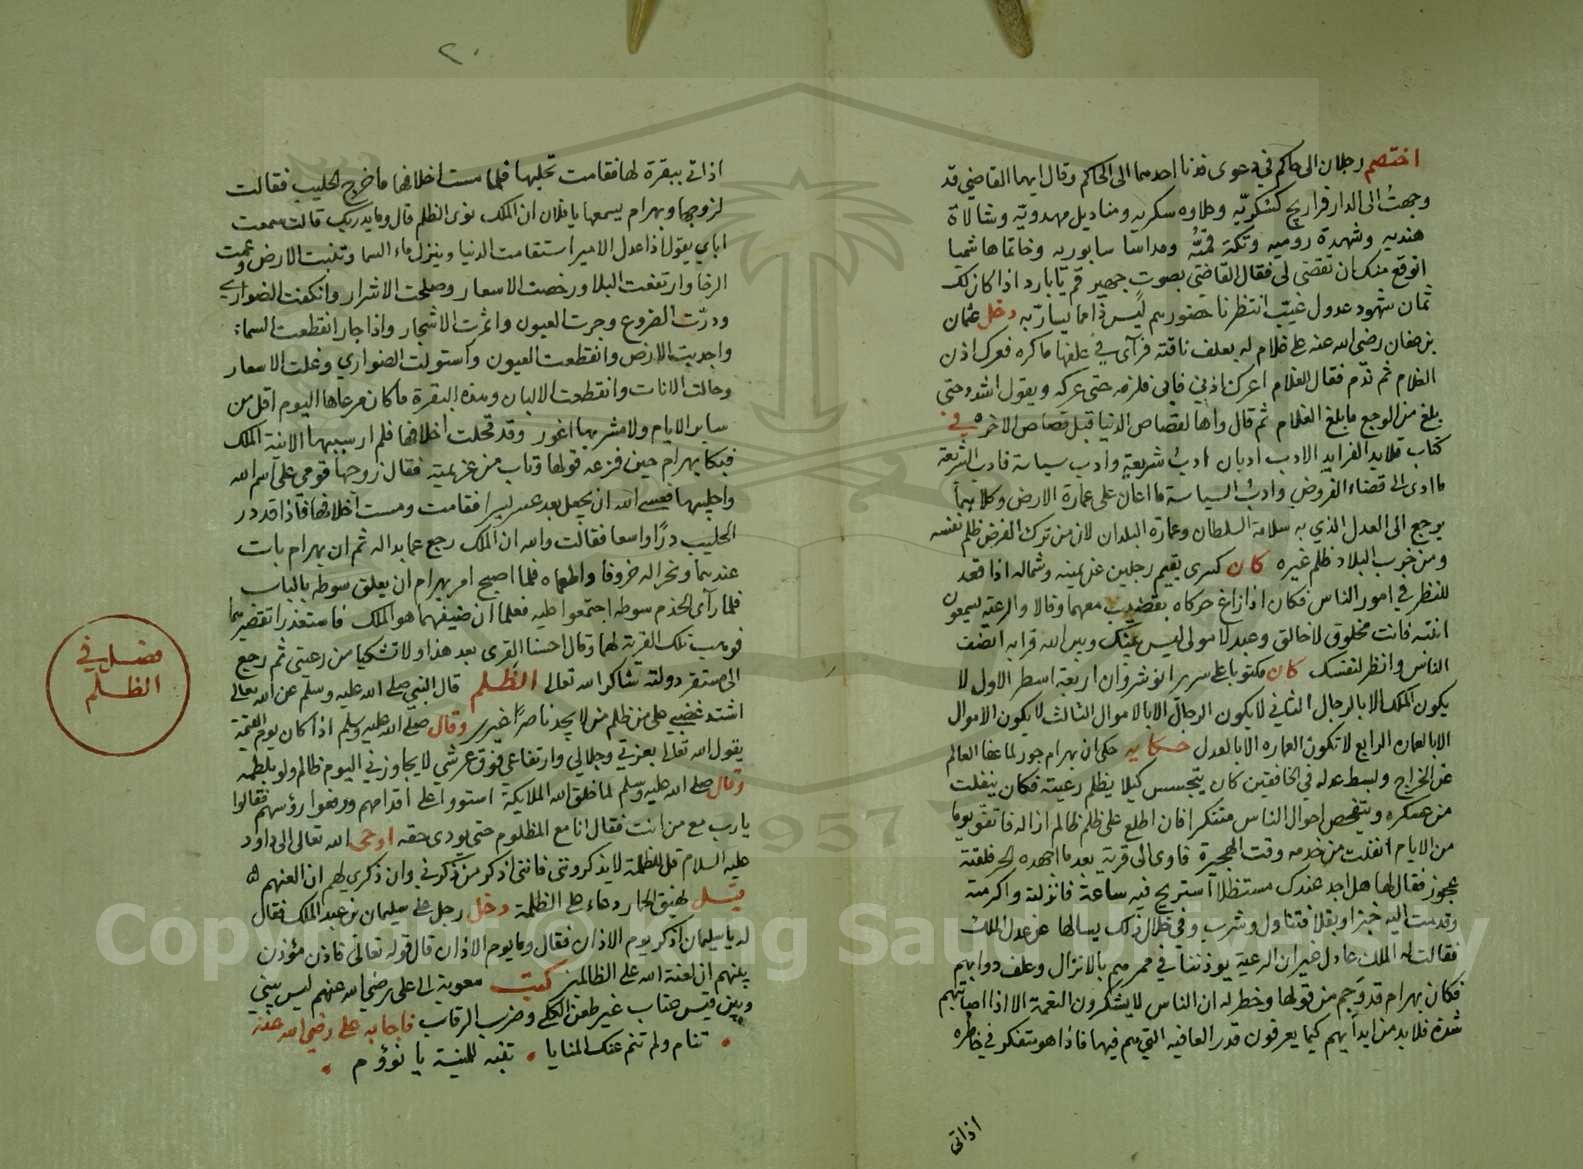 اختصم رجلان الى حاكم في دعوى فدنا احدهما الى الحاكم وقال ايها القاضي قد
وجهت الى الدار فراريج كسكريّه وحلاوه سكريه ومناديل مهدويّه وشالاة
هنديه وشهدة روميه وتكة ومداسا سابوريه وخاتما هاشميا
اتوقع منك ان تقضي لي فقال القاضي بصوت جهير قم يا بارد اذا كان لك
ثمان شهود عدول غيّب انتظرنا حضورهم ليس ذا مما يسارّ به دخل عثمان
بن عفان رضى الله عنه على غلام له يعلف ناقته فرآى في علفها ما كره فعرك اذن
الغلام ثم ندم فقال الغلام اعرك اذني فابى فلزمه حتى عركه ويقول اشدد حتى
بلغ من الوجع ما بلغ الغلام ثم قال واها لقصاص الدنيا قبل قصاص الاخره في
كتاب قلايد الفرايد الادب ادبان ادب شريعة وادب سياسة فادب الشريعة
ما ادى الى قضاء الفروض وادب السياسة ما اعان على عمارة الارض وكلاهما
يرجع الى العدل الذي به سلامة السلطان وعمارة البلدان لان من ترك الفرض ظلم نفسه
ومن خرب البلاد ظلم غيره كان كسرى يقيم رجلين عن يمينه وشماله اذا قعد
للنظر في امور الناس فكان اذا زاغ حركاه بقضيب معهما وقالا والرعية يسمعون
انتبه فانت مخلوق لا خالق وعبد لا مولى ليس بينك وبين الله قرابه انصف
الناس وانظر لنفسك كان مكتوبا على سرير انوشروان اربعة اسطر الاول لا
يكون الملك الا بالرجال الثاني لا يكون الرجال الا بالاموال الثالث لا يكون الاموال
الا بالعماره الرابع لا تكون العماره الا بالعدل حكايه حكى ان بهرام جور لما عفا العالم
عن الخراج وبسط عدله في الخافقين كان يتجسس كيلا يظلم رعيته فكان ينفلت
من عسكره ويتفحص احوال الناس متنكرا فان اطلع على ظلم ظالم ازاله فاتفق يوما
من الايام انفلت من خدمه وقت الهجيرة فاوى الى قرية بعد ما اجهده الحر فلقته
عجوز فقال لها هل اجد عندك مستظلا استريح فيه ساعة فانزلته واكرمته
وقدمت اليه خبزا وبقلا فتناول وشرب وفي خلال ذلك يسالها عن عدل الملك
فقالت له الملك عادل غير ان الرعية يوذنها في ممرهم بالانزال وعلف دوابهم
فكان بهرام قد وجم من قولها وخطر له ان الناس لا يشكرون النعمة الا اذا اصابتهم
شدة فلا بد من ايدآيهم كيما يعرفون قدر العافيه التي هم فيها فاذا هو متفكر في خاطره
اذاتى
٢٠
اذ اتي ببقرة لها فقامت تحلبها فلما مست اخلافها ما خرج الحليب فقالت
لزوجها وبهرام يسمعها يا فلان ان الملك نوى الظلم قال وما يدريك قالت سمعت
اباي يقول اذا عدل الامير استقامت الدنيا وينزل ماء السما وتنبت الارض وعمت
الرخا وارتفعت البلا ورخصت الاسعار وصلحت الاشرار وانكفت الضواري
ودرّت الضروع وجرت العيون واثمرت الاشجار واذا جار انقطعت السماء
واجدبت الارض وانقطعت العيون واستولت الضواري وغلت الاسعار
وحالت الاناث وانقطعت الالبان وهذه البقرة ما كان مرعاها اليوم اقل من
ساير الايام ولا مشربها اغور وقد قحلت اخلافها فلم ار سببها الا نية الملك
فبكا بهرام حين فزعه قولها وتاب من عزيمته فقال زوجها قومي على اسم الله
واحلبيها فعسى الله ان يجعل بعد عسر يسرا فقامت ومست اخلافها فاذا قد در
الحليب درّا واسعا فقالت والله ان الملك رجع عما بدا له ثم ان بهرام بات
عندهما ونحرا له خروفا واطعماه فلما اصبح امر بهرام ان يعلق سوطه بالباب
فلما رآى الخدم سوطه اجتمعوا عليه فعلما ان ضيفهما هو الملك فاستعذرا تقصيرهما
فوهب تلك القرية لهما وقال احسنا القرى بعد هذا ولا تشكيا من رعيتى ثم رجع
الى مستقر دولته شاكرا لله تعالى الظلم قال النبي صلى الله عليه وسلم عن الله تعالى
اشتد غضبي على من ظلم من لا يجد ناصرا غيري وقال صلى الله عليه وسلم اذا كان يوم القيمة
يقول الله تعالى بعزتي وجلالي وارتفاعي فوق عرشي لا يجاوزني اليوم ظالم ولو بلطمه
وقال صلى الله عليه وسلم لما خلق الله الملايكة استووا على اقدامهم ورفعوا رؤسهم فقالوا
يا رب مع من انت فقال انا مع المظلوم حتى يودى حقه اوحى الله تعالى الى داود
عليه السلام قل للظلمة لا يذكرونني فانني اذكر من ذكرني وان ذكري لهم ان العنهم
قيل نهيق الحمار دعاء على الظلمة دخل رجل على سليمان بن عبد الملك فقال
له يا سليمان اذكر يوم الاذان فقال وما يوم الاذان قال قوله تعالى فاذن مؤذن
بينهم ان لعنة الله على الظالمين كتب معوية الى على رضي الله عنهم ليس بيني
وبين قيس عتاب غير طعن الكلى وضرب الرقاب فاجابه على رضي الله عنه
تنام ولم تنم عنك المنايا تنبه للمنية يا نؤوم
فصل في
الظلم
Copyright © King Saud University
1957